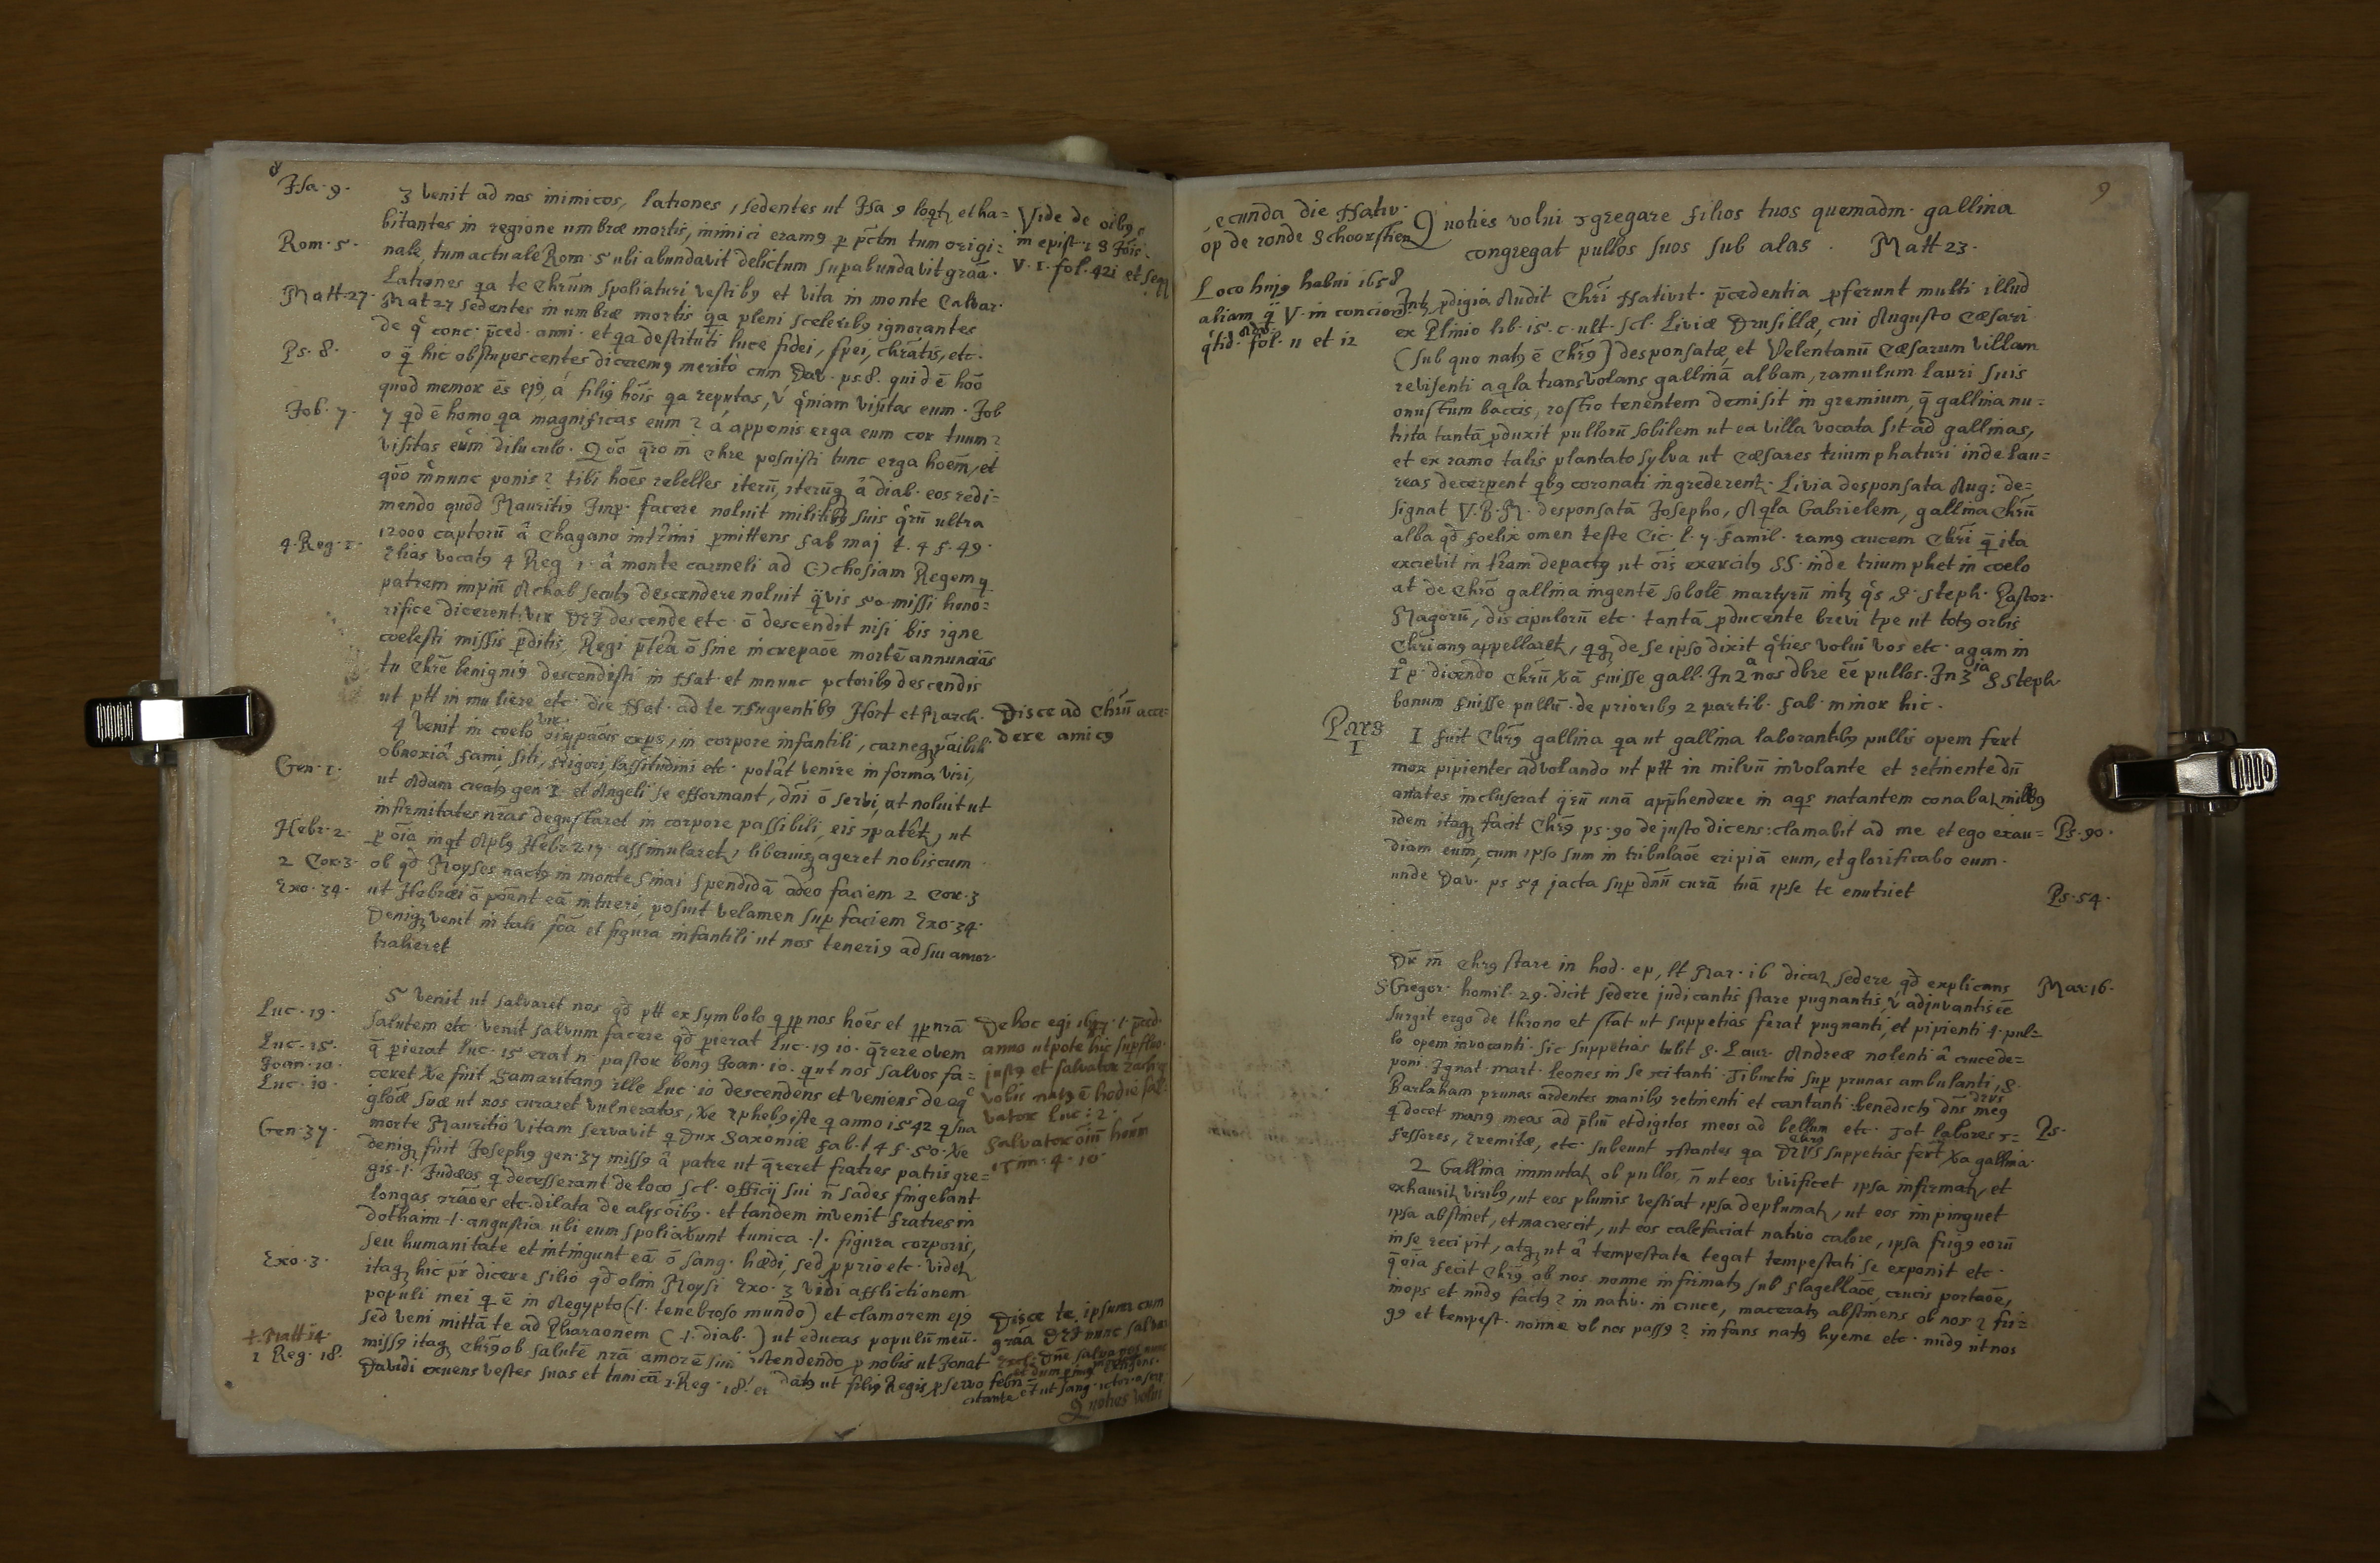 8
Isa. 9.
3 venit ad nos inimicos, latrones, sedentes ut Isa 9 loqt, et ha=
bitantes in regione umbræ mortis, inimici eramq p pctm tum origi=
Rom. 5.
nale, tum actuale Rom. 5 ubi abundavit delictum supabundavit grãa.
Vide de oibq
in epist. 1 S Jõis.
V. 1. fol. 421 et seq
Latrones qa te Chrũm spoliaturi vestibq et vita in monte Calvar.
Matt. 27.
Mat 27 sedentes in umbræ mortis qa pleni sceleribq ignorantes
de q conc. pced. anni. et qa destituti luce fidei, spei, chratis, etc.
Ps. 8.
o q hic obstupescentes diceremq meritò cum Dav. ps. 8. quid ē hoõ
quod memor ēs ejq, à filiq hõis qa reputas, v qniam visitas eum. Job
Job. 7.
7 qd ē homo qa magnificas eum? à apponis erga eum cor tuum?
visitas eum diluculo. Qõo qro m Chre posuisti tunc erga hoēm, et
qõo m nunc ponis? tibi hoēs rebelles iterũ, iterũq â diab. eos redi=
mendo quod Mauritiq Imp. facere noluit militibq suis qrũ ultra
12000 captorũ â Chagano intrimi pmittens Fab maj t. 4 f. 49.
4. Reg. 1.
Elias vocatq 4 Reg 1. â monte carmeli ad Ochosiam Regem q
patrem impiũ Achab secutq descendere noluit qvis 50 missi hono=
rifice dicerent: vir DEI descende etc. õ descendit nisi bis igne
coelesti missis pditis, Regi ptea õ sine increpaõe mortē annuncias
tu Chrē benigniq descendisti in Nat. et mnunc pctoribq descendis
ut ptt in muliere etc. die Nat. ad te rfugientibq Hort et March.
Disce ad Chrũ acce=
dere amicq
4 Venit in coelo oisq pãas exps, in corpore infantili, carneq, pãibili
obnoxiâ fami, siti, frigori, lassitudini etc. potât venire in forma viri,
Gen. 1.
ut Adam creatq gen 1. et Angeli se efformant, dni õ servi, at noluit ut
infirmitates nras degustaret in corpore passibili, eis rpatêt, ut
Hebr. 2.
p oia inqt Aplq Hebr 2 17. assimularet, liberiusq ageret nobiscum.
2 Cor. 3.
ob qd Moyses nactq in monte Sinai spendidã adeo faciem 2 Cor. 3
Exo. 34.
ut Hebræi õ põent eã intueri, posuit velamen sup faciem Exo. 34.
Deniq venit in tali foã et figura infantili ut nos teneriq ad sui amor.
traheret
5 venit ut salvaret nos qd ptt ex symbolo q pp nos hoēs et pp nrã
Luc. 19.
salutem etc venit salvum facere qd pierat Luc. 19 10. qrere ovem
Luc. 15.
q pierat Luc. 15 erat n. pastor bonq Joan. 10. qut nos salvos fa=
Joan. 10.
Luc. 10.
ceret xe fuit Samaritanq ille Luc. 10 descendens et veniens de eq
glõæ suæ ut nos curaret vulneratos, xe ephebq iste q anno 1542 q sua
De hoc egi pced.
anno utpote hic supfluo.
justq et salvator Zach 9
vobis natq ē hodie sal=
vator Luc: 2.
Salvator oiũ hoim
1 Tim. 4. 10.
morte Mauritiò vitam servavit q Dux Saxoniæ Fab. t 4 f. 50. Xe
Gen. 37.
deniq fuit Josephq gen. 37 missq â patre ut qreret fratres patris gre=
gis .1. Judæos q decesserant de loco scl. officij sui ñ sades fingebant
longas orãoes etc. dilata de alijs oibq. et tandem invenit fratres in
Dothaim .1. angustia ubi eum spoliabunt tunica .1. figura corporis,
seu humanitate et intingunt eã õ sang. hædi, sed pprio etc. videt
Exo. 3.
itaq hic pr dicere filio qd olim Moysi Exo. 3 vidi afflictionem
populi mei q ē in Aegypto (.1. tenebroso mundo) et clamorem ejq
sed veni mittã te ad Pharaonem (.1. diab.) ut educas populũ meũ.
Disce te ipsum cum
grãa DEI nunc salvar
+ Matt 14
missq itaq Chrq ob salutē nrã amorē sui rtendendo p nobis ut Jonat
1 Reg. 18.
Davidi exuens vestes suas et tunicã 1. Reg. 18. ei datq ut filiq Regis pservo
Quoties volui
9
secunda die Nativ.
op de ronde Schoorstien
Quoties volui rgregare filios tuos quemadm. gallina
congregat pullos suos sub alas. Matt 23.
Loco hujq habui 1658
aliam q V. in concion.
qtid. fol. 11 et 12
Intq pdigia Audit Chri Nativit. pcedentia pferunt multi illud
ex Plinio lib. 15. c. ult. scl. Liviæ Drusillæ, cui Augusto Cæsari
(sub quo natq ē Chrq) desponsatæ, et Velentanũ Cæsarum Villam
revisenti aqla transvolans gallinã albam, ramulum lauri suis
onustum baccis, rostro tenentem demisit in gremium, q gallina nu=
trita tantã pduxit pullorũ sobilem ut ea villa vocata sit ad gallinas,
et ex ramo talis plantato sylva ut Cæsares triumphaturi inde lau=
reas decerpent qbq coronati ingrederent. Livia desponsata Aug: de=
signat V. B. M. desponsatã Josepho, Aqla Gabrielem, gallina Chrũ
alba qd foelix omen teste Cic. l. 7. famil. ramq crucem Chri q ita
excrevit in tram depactq ut oīs exercitq SS. inde triumphet in coelo
at de Chrõ gallina ingentē sobolē martyrũ intq qs S. Steph. Pastor.
Magorũ, discipulorũ etc. tantã pducente brevi tpe ut totq orbis
Chrianq appellaret, qq de se ipso dixit qties volui vos etc. agam in
1ª p. dicendo Chrũ xã fuisse gall. In 2ª nos dbre ēe pullos. In 3ia S Steph.
bonum fuisse pullũ. de prioribq 2 partib. Fab. minor hic.
Pars
1
1 fuit Chrq gallina qa ut gallina laborantibq pullis opem fert
mox pipientes advolando ut ptt in milvũ involante et retinente dũ
anates incluserat qrũ unã apphendere in aqs natantem conabat milvq
idem itaq facit Chrq ps. 90 de justo dicens: clamabit ad me et ego exau=
Ps. 90.
diam eum, cum ipso sum in tribulaõe eripiã eum, et glorificabo eum.
unde Dav. ps 54 jacta sup dnũ curã tuã ipse te enutriet
Ps. 54.
Dr m Chrq stare in hod. ep, lt Mar. 16 dicat sedere, qd explicans
Mar 16.
S Gregor. homil. 29. dicit sedere judicantis stare pugnantis, v adjuvantis ēē
surgit ergo de throno et stat ut suppetias ferat pugnanti, et pipienti 4. pul=
lo opem invocanti. sic suppetias tulit S. Laur. Andreæ nolenti â cruce de=
poni. Ignat. mart. leones in se xcitanti. Tiburtio sup prunas ambulanti, S.
Barlaham prunas ardentes manibq retinenti et cantanti: benedictq dns DEVS meq
q docet manq meas ad pliũ et digitos meos ad bellum etc. Tot labores r=
Ps.
fessores, Eremitæ, etc. subeunt rstantes qa DEVS Chrq suppetias fert xa gallina.
2 Gallina immutat, ob pullos, ñ ut eos vivificet ipsa infirmat, et
exhaurit viribq, ut eos plumis vestiat ipsa deplumat, ut eos impinguet
ipsa abstinet, et macrescit, ut eos calefaciat nativo calore, ipsa frigq eorũ
in se recipit, atq ut â tempestate tegat tempestati se exponit etc.
q oia fecit Chrq ob nos nonne infirmatq sub flagellaõe, crucis portaõe,
inops et nudq factq? in nativ. in cruce, maceratq abstinens ob nos? fri=
gq et tempest. nonne ob nos passq? infans natq hyeme etc. nudq ut nos